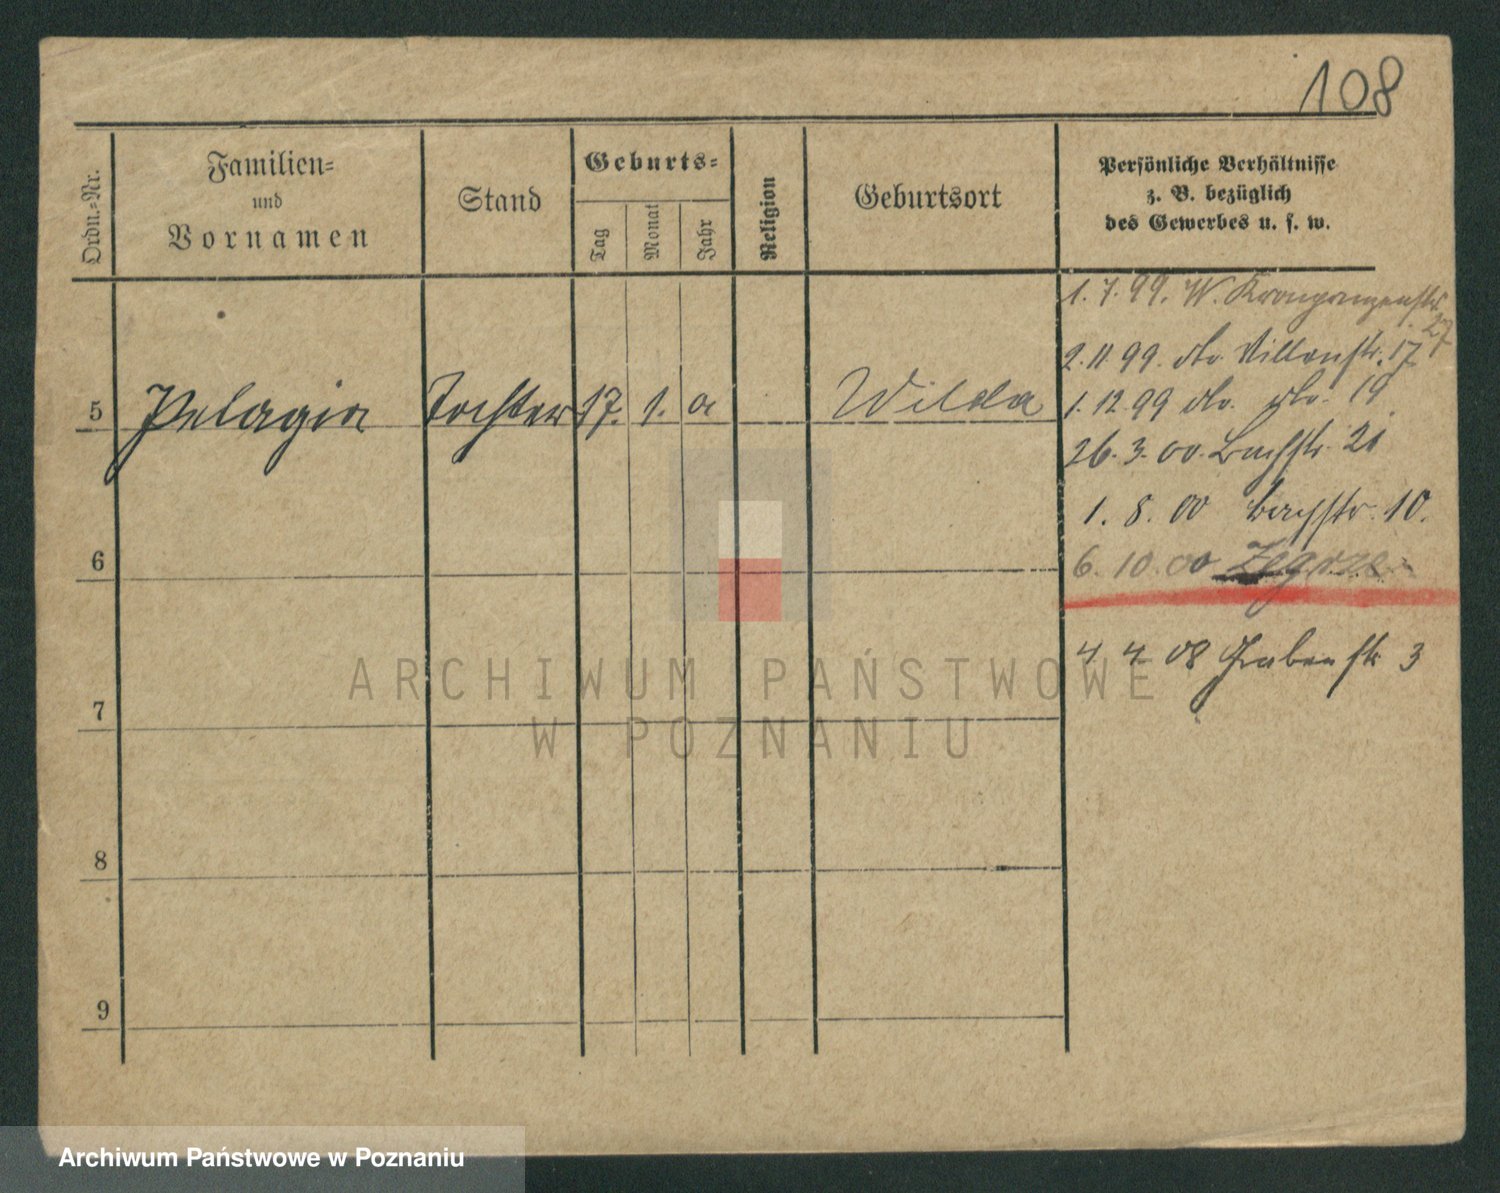 108
Ordn.=Nr.
Familien=
und
Vornamen
Stand
Geburts=
Tag
Monat
Jahr
Religion
Geburtsort
Persönliche Verhältnisse
z. B. bezüglich
des Gewerbes u. s. w.
1. 7. 99. W. Kronprinzenstr.
27
2. 11 99. do. Villenstr. 17
5 Pelagia Tochter 17. 1. Wilda
1. 12. 99 do. do. 19
26. 3. 00. Bachstr. 21
1. 8. 00 Bachstr. 10.
6
6. 10. 00 Zegrze
4 4 08 Grabenstr 3
7
8
9
ARCHIWUM PAŃSTWOWE
W POZNANIU
Archiwum Państwowe w Poznaniu